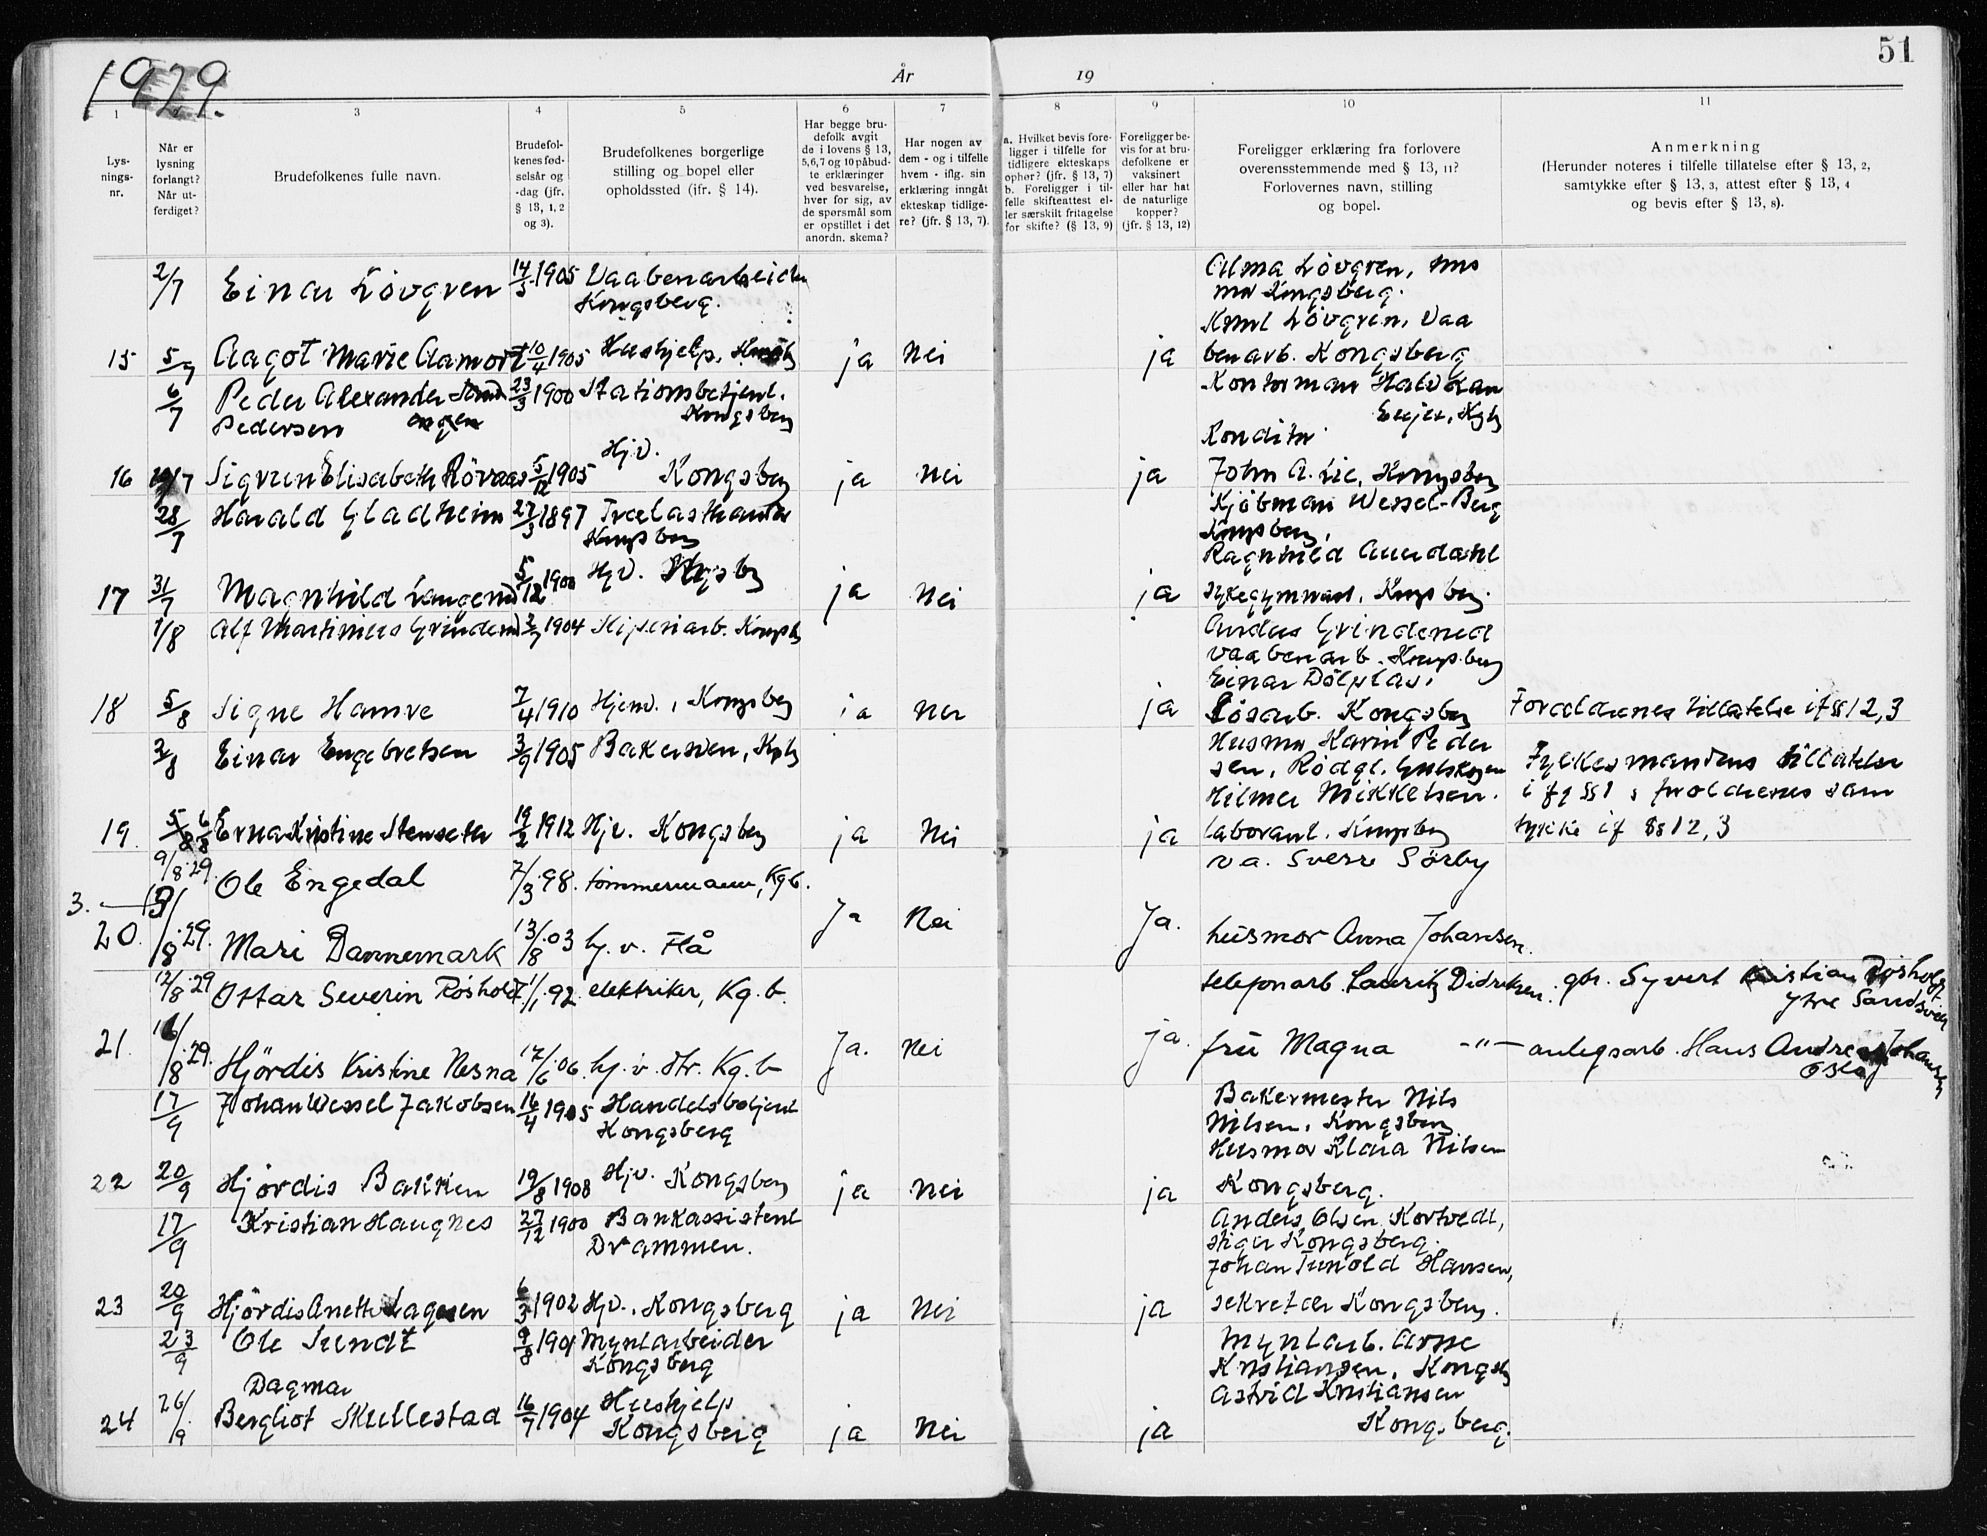 1929.
År
19
51
1
3
4
5
6
7
8
9
10
11
Lysnings-nr.
Når er lysning forlangt? Når utferdiget?
Brudefolkenes fulle navn.
Brudefolkenes fødselsår og -dag (jfr. § 13, 1, 2 og 3).
Brudefolkenes borgerlige stilling og bopel eller opholdssted (jfr. § 14).
Har begge brudefolk avgit de i lovens § 13, 5, 6, 7 og 10 påbudte erklæringer ved besvarelse, hver for sig, av de spørsmål som er opstillet i det anordn. skema?
Har nogen av dem - og i tilfelle hvem - iflg. sin erklæring inngåt ekteskap tidligere? (jfr. § 13, 7).
a. Hvilket bevis foreligger i tilfelle for tidligere ekteskaps ophør? (jfr. § 13, 7)
b. Foreligger i tilfelle skifteattest eller særskilt fritagelse for skifte? (§ 13, 9)
Foreligger bevis for at brudefolkene er vaksinert eller har hat de naturlige kopper? (jfr. § 13, 12)
Foreligger erklæring fra forlovere overensstemmende med § 13, 11? Forlovernes navn, stilling og bopel.
Anmerkning
(Herunder noteres i tilfelle tillatelse efter § 13, 2, samtykke efter § 13, 3, attest efter § 13, 4 og bevis efter § 13, 8).
2/7 Einar Lövgren 14/3 1905 Vaabenarbeider Kongsberg.
Alma Lövgren, hus
mor Kongsberg.
Lövgren, Vaa
15 5/7 Aagot Marie Aamodt 10/4 1905 Hushjelp, ja Nei ja benarb. Kongsberg
6/7 Peder Alexander engen Pedersen 23/3 1900 Stationsbetjent. Kongsberg
Kontorman Halvdan
Eujer, Kgbg
Konditor
16 /7 Sigrun Elisabeth Röv 5/12 1905 Hjv. Kongsberg ja Nei ja John A. Lie, Kongsberg
28/7 Harald Gladheim 27/3 1897 Trælasthandler Kongsberg
Kjöbman Wessel-Berg
Kongsberg,
Ragnhild
17 31/7 Magnhild Langerud 5/12 1900 Hjv. Kgsbg ja Nei ja sykegymnast, Kongsberg.
1/8 Alf Martinius Grinderud 1904 Kongsbg
Anders Grinderud
vaabenarb. Kongsberg
Einar Dölplas,
18 5/8 Signe Hamre 7/4 1910 Hjemv., Kongsberg ja Nei ja Lösarb. Kongsberg Foreldrenes tillatelse if §§ 12, 3
2/8 Einar Engebretsen 3/9 1905 Bakersven, Kgbg
Husmor Karin Peder
sen, Rödgt. Gulskogen
Hilmer Mikkelsen.
Fylkesmandens tillatelse
i flg §§ 1 s foreldrenes sam
19. 5/8 6/8 Erna Kristine Stenseter 19/2 1912 Hjv. Kongsberg ja Nei ja laborant. Kongsberg tykke if §§ 12, 3
9/8.29. Ole Engedal 7/3 98. tömmermann, Kgb. v a. Sverre Sörby
3.
20. /8.29. Mari Dannemark 13/8.03 hj. v. Flå Ja Nei Ja. husmor Anna Johansen.
12/8 29 Ottar Severin Røsholdt 1/1.92. elektriker, Kg.b. telefonarb. Lauritz Didriksen. gbr. Syvert Kristian Røsholdt Ytre Sandsvær
21. 16/8.29. Hjördis Kristine Nesna 17/6.06. hj. v. dtr. Kg.b Ja. Nei ja. fru Magna -"- anlegsarb. Hans Andreas Johansen Oslo
17/9 Johan Wessel Jakobsen 16/4 1905 Handelsbetjent Kongsberg
Bakermester Nils
Nilsen, Kongsberg
Husmor Klara Nilsen
22 20/9 Hjördis Bakken 19/8 1908 Hjv. Kongsberg ja Nei ja Kongsberg.
17/9 Kristian Haugnes 27/12 1900 Bankassistent Drammen.
Anders Olsen Kortvedt,
stiger Kongsberg.
Johan Tunold Hansen,
23 20/9 Hjördis Anette Lagesen 6/3 1902 Hjv., Kongsberg ja Nei ja sekretær Kongsberg.
23/9 Ole Sundt 9/8 1901 Myntarbeider Kongsberg
Myntarb. Arne
Kristiansen, Kongsbg
Astrid Kristiansen
Kongsberg.
24 26/9 Dagmar
Bergliot Skullestad 16/7 1904 Hushjelp Kongsberg ja Nei ja